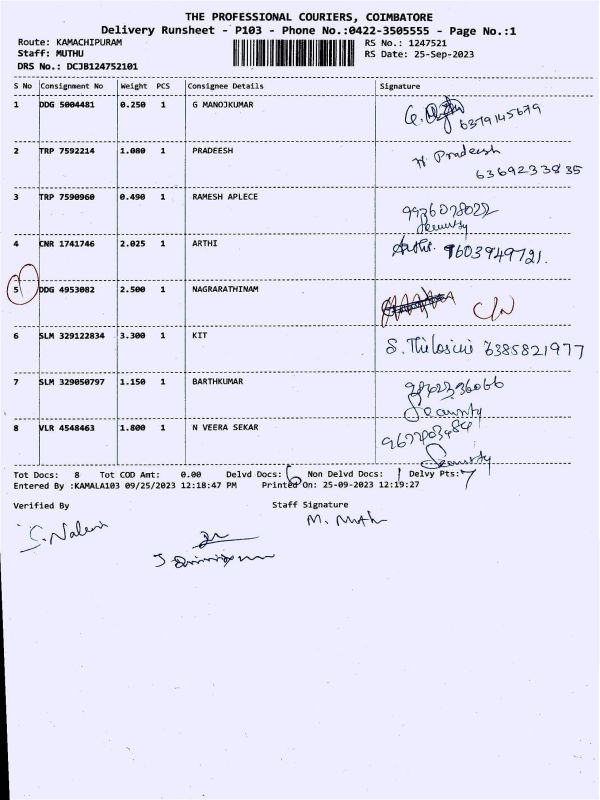 THE PROFESSIONAL COURIERS, COIMBATORE
Delivery Runsheet - P103 - Phone No.:0422-3505555 - Page No.:1
Route: KAMACHIPURAM RS No.: 1247521
Staff: MUTHU RS Date: 25-Sep-2023
DRS No.: DCJB124752101
S No Consignment No Weight PCS Consignee Details Signature
1 DDG 5004481 0.250 1 G MANOJKUMAR
6379145679
2 TRP 7592214 1.080 1 PRADEESH H Pradeesh
6369233835
3 TRP 7590960 0.490 1 RAMESH APLECE
Security
4 CNR 1741746 2.025 1 ARTHI Arthi. 9603949721.
5 DDG 4953082 2.500 1 NAGRARATHINAM C/N
6 SLM 329122834 3.300 1 KIT S. Thilosini 6385821977
7 SLM 329050797 1.150 1 BARTHKUMAR
Security
8 VLR 4548463 1.800 1 N VEERA SEKAR
Security
Tot Docs: 8 Tot COD Amt: 0.00 Delvd Docs: 6 Non Delvd Docs: 1 Delvy Pts: 7
Entered By :KAMALA103 09/25/2023 12:18:47 PM Printed On: 25-09-2023 12:19:27
Verified By Staff Signature
M. Muth